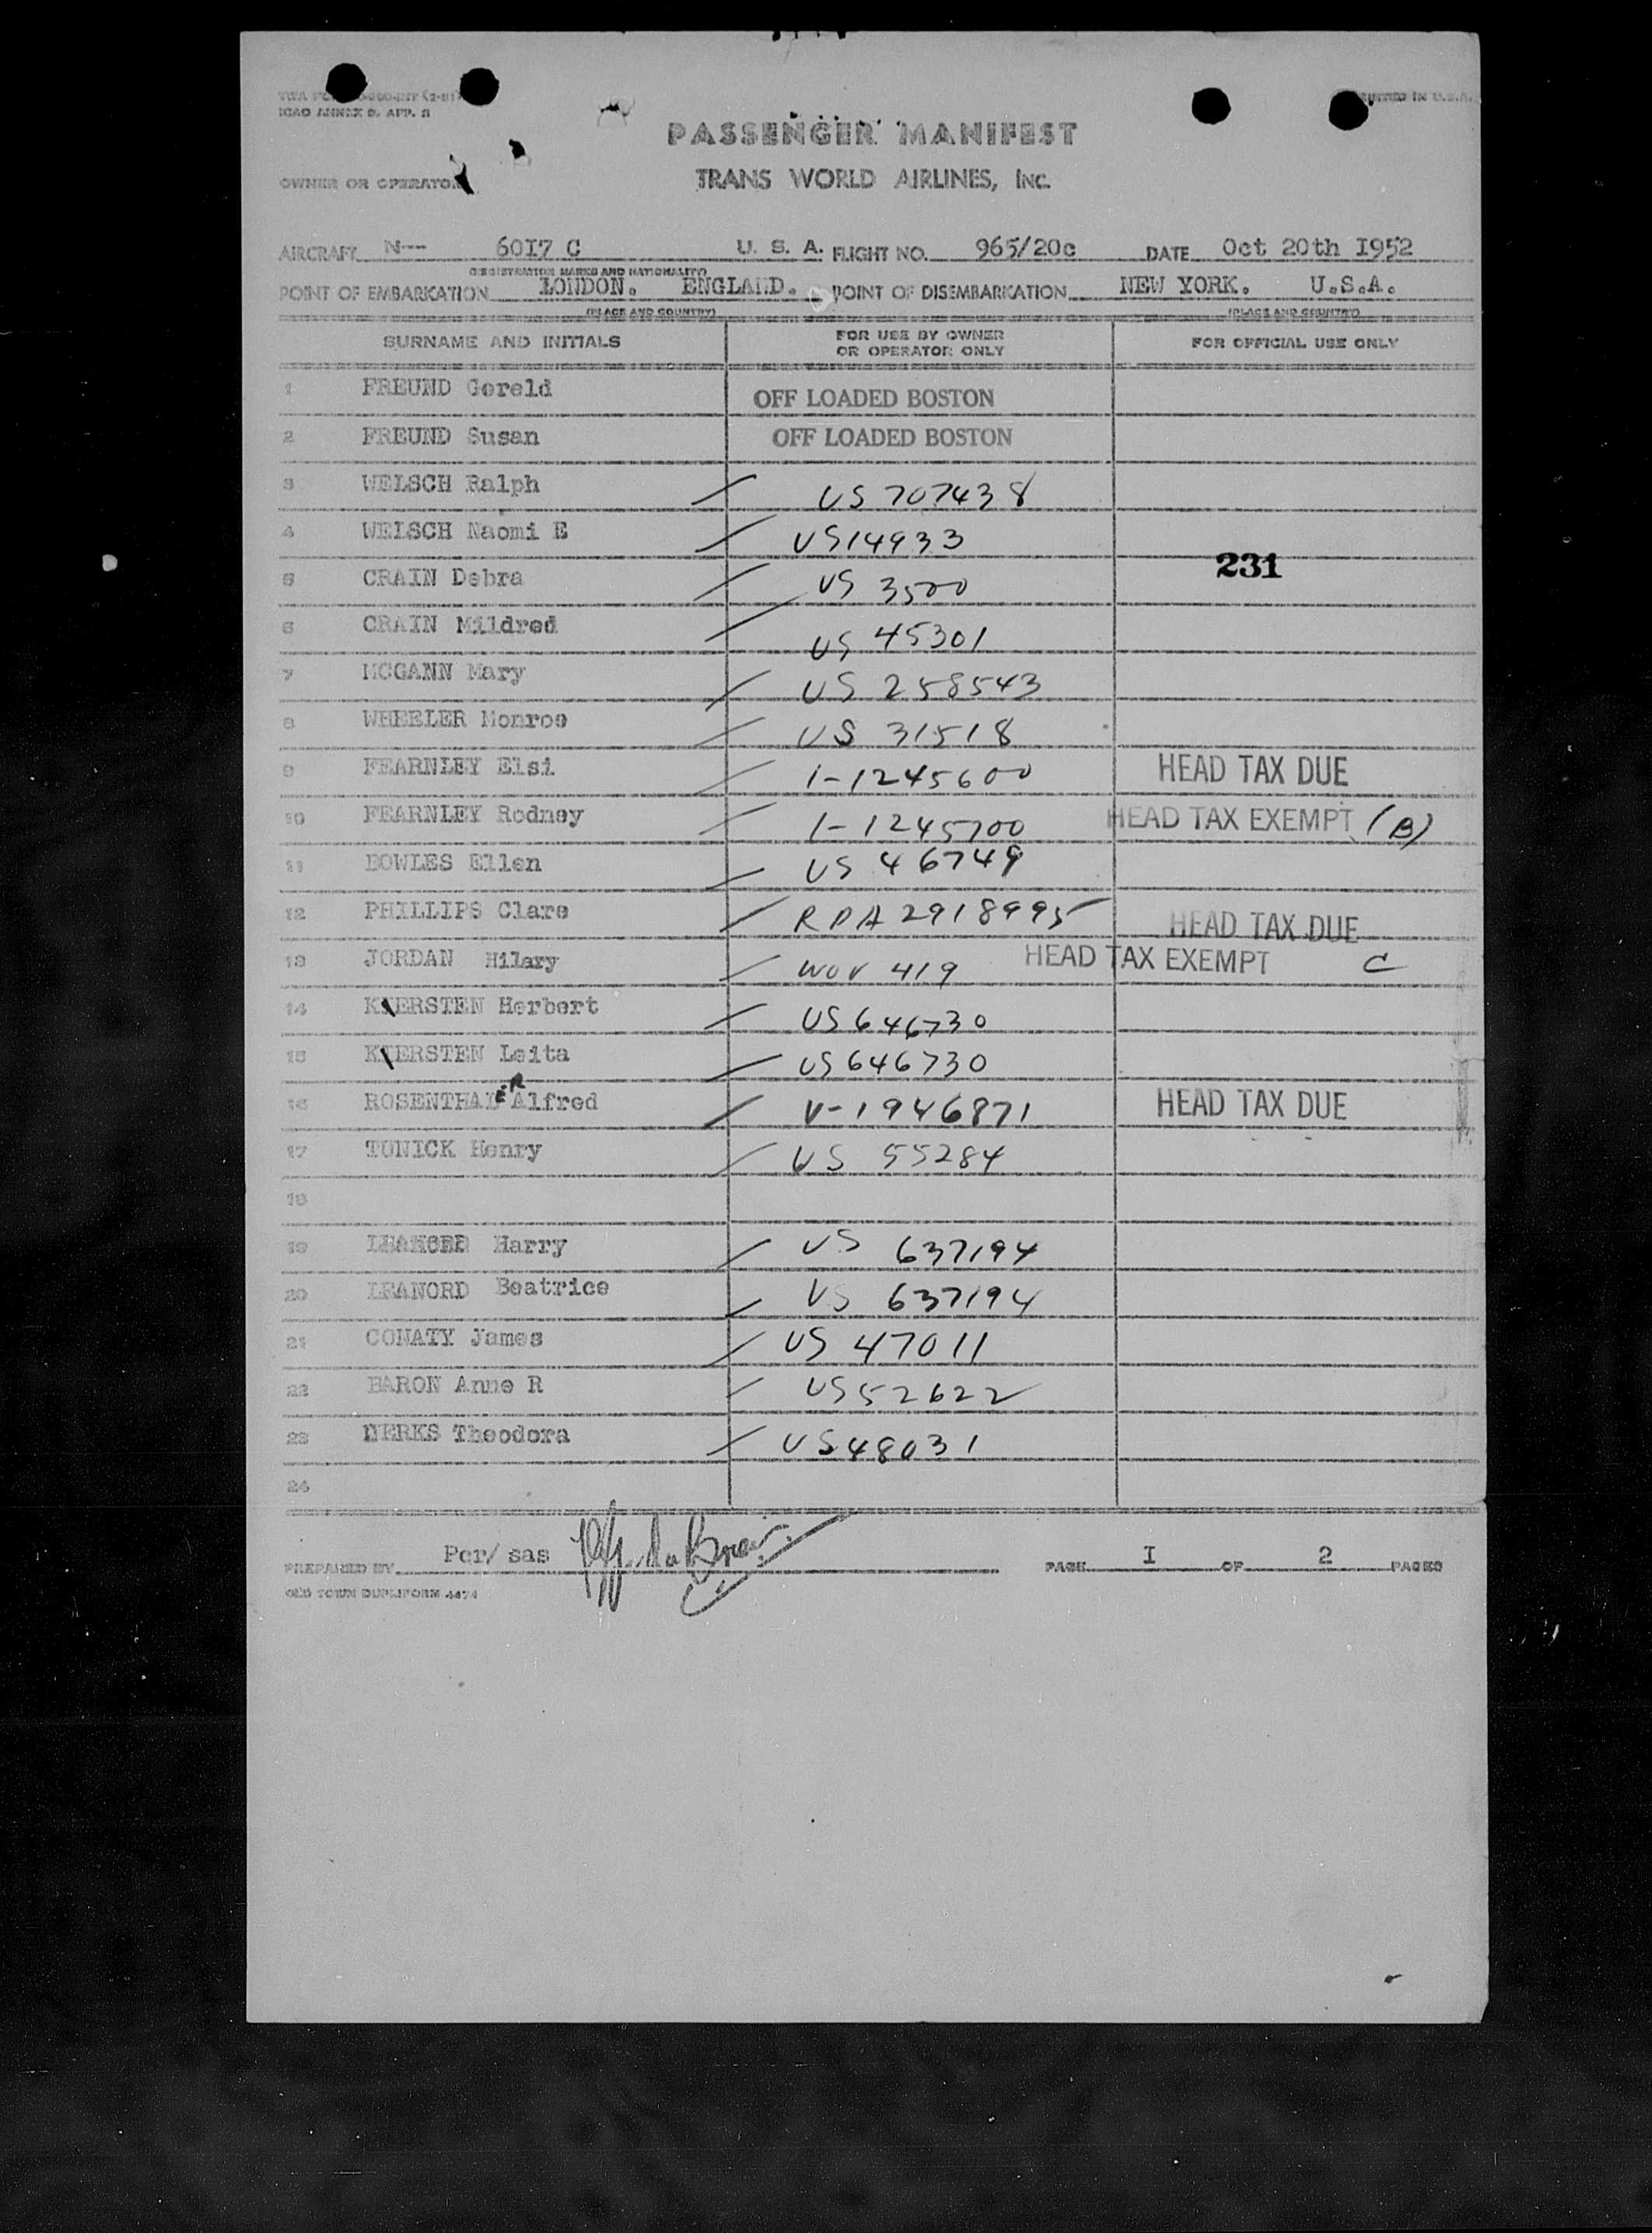 ICAO ANNEX 9, APP. 2
PRINTED IN U.S.A.
PASSENGER MANIFEST
OWNER OR OPERATOR
TRANS WORLD AIRLINES, INC.
AIRCRAFT N-- 6017 C U. S. A. FLIGHT NO. 965/20c DATE Oct 20th 1952
(REGISTRATION MARKS AND NATIONALITY)
POINT OF EMBARKATION LONDON. ENGLAND. POINT OF DISEMBARKATION NEW YORK. U.S.A.
(PLACE AND COUNTRY) (PLACE AND COUNTRY)
SURNAME AND INITIALS FOR USE BY OWNER OR OPERATOR ONLY FOR OFFICIAL USE ONLY
1 FREUND Gereld OFF LOADED BOSTON
2 FREUND Susan OFF LOADED BOSTON
3 WELSCH Ralph US 707438
4 WELSCH Naomi E US 14933
231
5 CRAIN Debra US 3500
6 CRAIN Mildred US 45301
7 MCGANN Mary US 258543
8 WHEELER Monroe US 31518
9 FEARNLEY Elsi 1-1245600 HEAD TAX DUE
10 FEARNLEY Rodney 1-1245700 HEAD TAX EXEMPT (B)
11 BOWLES Ellen US 46749
12 PHILLIPS Clare RPA 2918995 HEAD TAX DUE
13 JORDAN Hilary WOV 419 HEAD TAX EXEMPT C
14 KIERSTEN Herbert US 646730
15 KIERSTEN Leita US 646730
16 ROSENTHALER Alfred V-1946871 HEAD TAX DUE
17 TUNICK Henry US 55284
18
19 Harry US 637194
20 LEANORD Beatrice US 637194
21 CONATY James US 47011
22 BARON Anne R US 52622
23 DERKS Theodora US 48031
24
PREPARED BY Per/ sas PAGE I OF 2 PAGES
OLD TOWN DUPLIFORM 4474